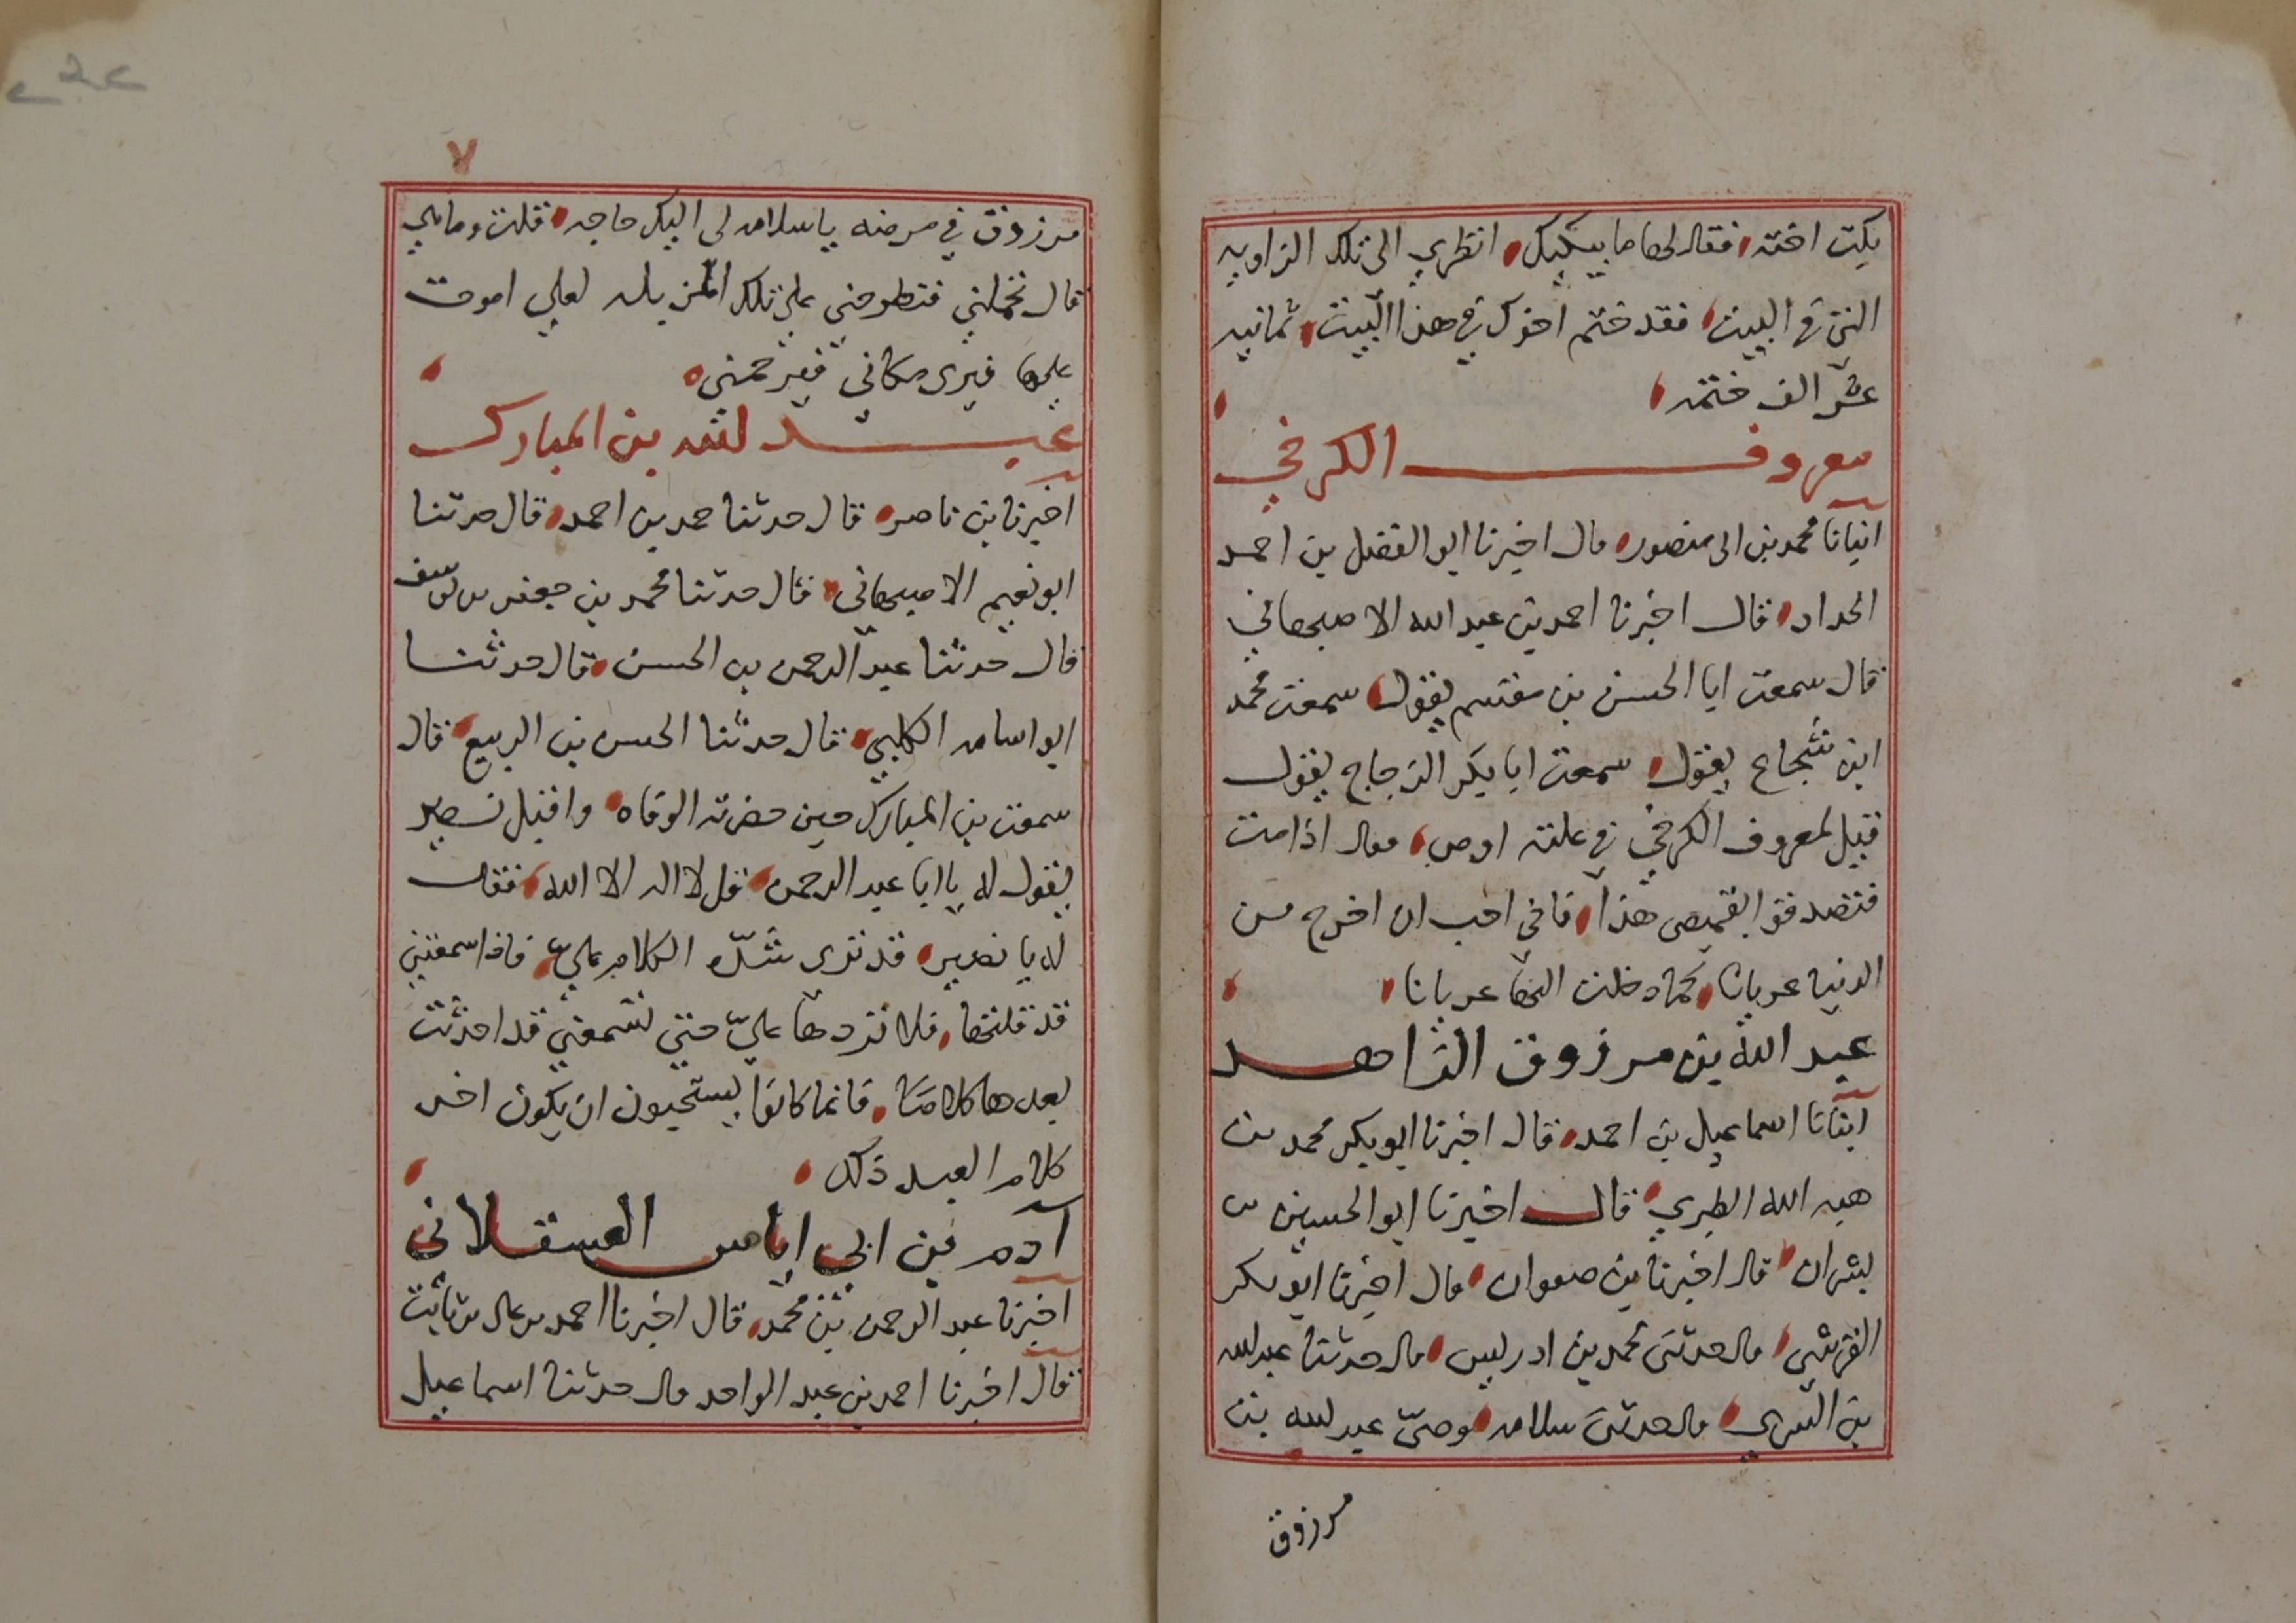 بكت اخته فقال لها ما يبكيك انظري الى تلك الزاويه
التى فى البيت فقد ختم اخوك في هذا البيت ثمانيه
عشر الف ختمه
معروف الكرخي
انبانا محمد بن ابى منصور قال اخبرنا ابو الفضل بن احمد
الحداد قال اخبرنا احمد بن عبد الله الاصبهاني
قال سمعت ابا الحسن بن مقسم يقول سمعت محمد
ابن شجاع يقول سمعت ابا بكر الزجاج يقول
قيل لمعروف الكرخي في علته اوص فقال اذا مت
فتصدقوا بقميصى هذا فانى احب ان اخرج من
الدنيا عريانا كما دخلت اليها عريانا
عبد الله بن مرزوق الزاهد
انبانا اسماعيل بن احمد قال اخبرنا ابو بكر محمد بن
هبه الله الطبري قال اخبرنا ابو الحسين بن
بشران قال اخبرنا بن صفوان قال اخبرنا ابو بكر
القرشي قال حدثنى محمد بن ادريس قال حدثنا عبد الله
بن السري قال حدثنى سلامه وصىّ عبد الله بن
مرزوق
٧
مرزوق في مرضه يا سلامه لى اليك حاجه قلت وما هي
قال تحملني فتطرحني على تلك المزبله لعلي اموت
عليها فيرى مكاني فيرحمني
عبد الله بن المبارك
اخبرنا بن ناصر قال حدثنا حمد بن احمد قال حدثنا
ابو نعيم الاصبهاني قال حدثنا محمد بن جعفر بن يوسف
قال حدثنا عبد الرحمن بن الحسن قال حدثنا
ابو اسامه الكلبي قال حدثنا الحسن بن الربيع قال
سمعت بن المبارك حين حضرته الوفاه واقبل نصير
يقول له يا ابا عبد الرحمن قل لا اله الا الله فقال
له يا نصير قد ترى شدّه الكلام عليّ فاذا سمعتني
قد قلتها فلا تردها عليّ حتى تسمعني قد احدثت
بعدها كلاما فانما كانوا يستحبون ان يكون اخر
كلام العبد ذلك
آدم بن ابي اياس العسقلاني
اخبرنا عبد الرحمن بن محمد قال اخبرنا احمد بن على بن ثابت
قال اخبرنا احمد بن عبد الواحد قال حدثنا اسماعيل